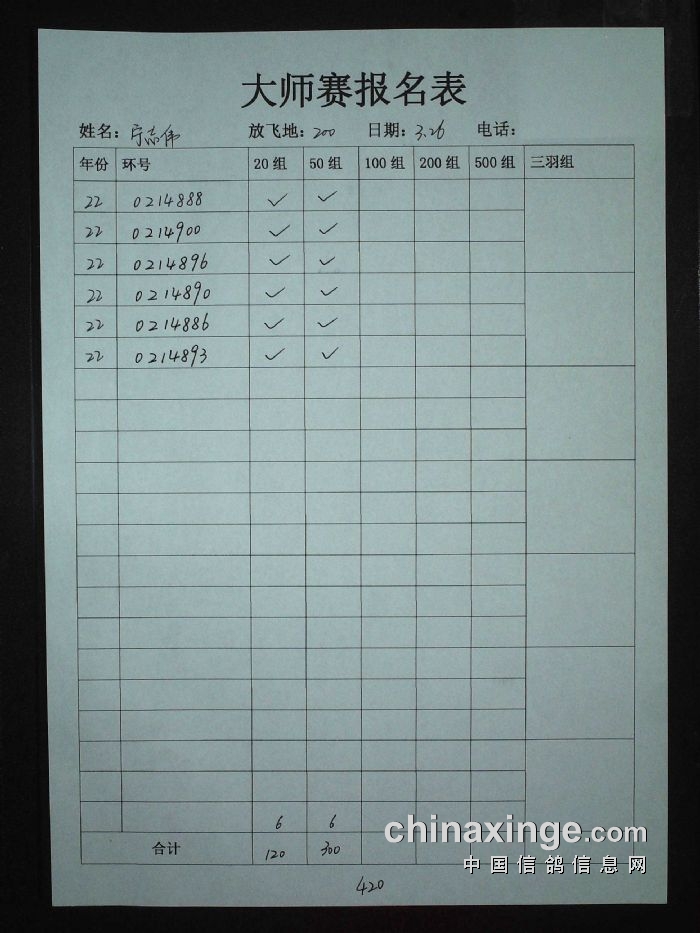 大师赛报名表
姓名：宁志伟 放飞地：200 日期：3.26 电话：
年份 环号 20组 50组 100组 200组 500组 三羽组
22 0214888 ✓ ✓
22 0214900 ✓ ✓
22 0214896 ✓ ✓
22 0214890 ✓ ✓
22 0214886 ✓ ✓
22 0214893 ✓ ✓
6 6
合计 120 300
420
chinaxinge.com
中国信鸽信息网